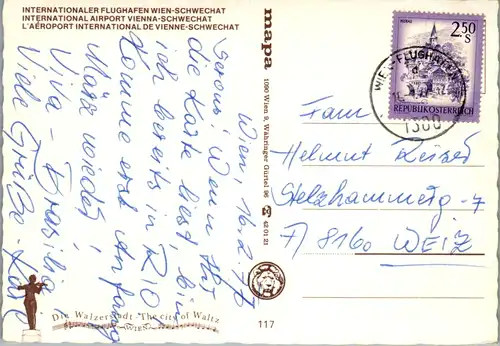 INTERNATIONALER FLUGHAFEN WIEN-SCHWECHAT
INTERNATIONAL AIRPORT VIENNA-SCHWECHAT
L'AÉROPORT INTERNATIONAL DE VIENNE-SCHWECHAT
Wien, 16.2.78
Servus! Wenn Ihr
die Karte liest, bin
ich bereits in RIO
Komme erst Anfang
März wieder!
Viva - Brasilia
Viele Grüße -
mapa
1090 Wien 9, Währinger Gürtel 96
62 01 21
MURAU
2.50
S
REPUBLIK ÖSTERREICH
WIEN-FLUGHAFEN
1300
Fam
Helmut
Stelzhammerg-7
A/8160 WEIZ
Die Walzerstadt - The city of Waltz
WIEN
117